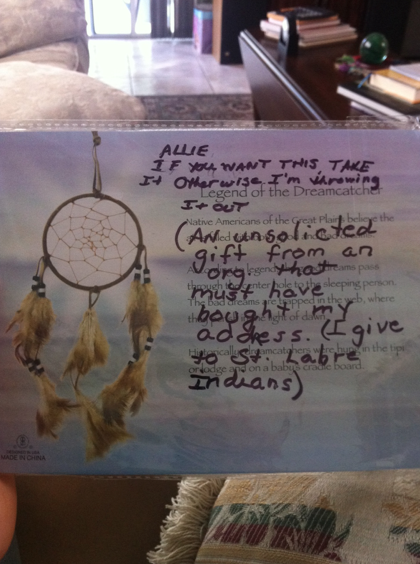 ALLIE
IF YOU WANT THIS TAKE
It Otherwise I'm throwing
Legend of the Dreamcatcher
It OUT
Native Americans of the Great Plains believe the
(An unsolicited
gift from an
org. that
legend dreams pass
through the center hole to the sleeping person.
must have
The bad dreams are trapped in the web, where
bought my
light of dawn
address. (I give
Historically dreamcatchers were hung in the tipi
to St. Labre
or lodge and on a baby's cradle board.
Indians)
MADE IN CHINA